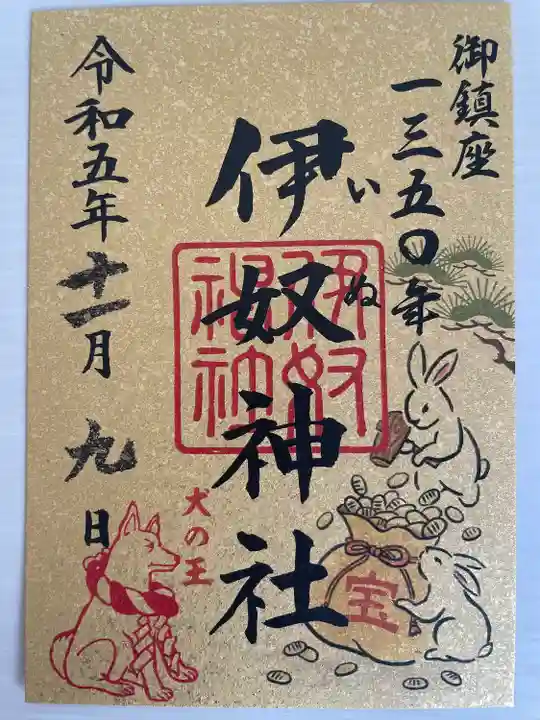 御鎮座
一三五〇年
伊奴神社
いぬ
伊奴神社
令和五年十一月九日
犬の王
宝